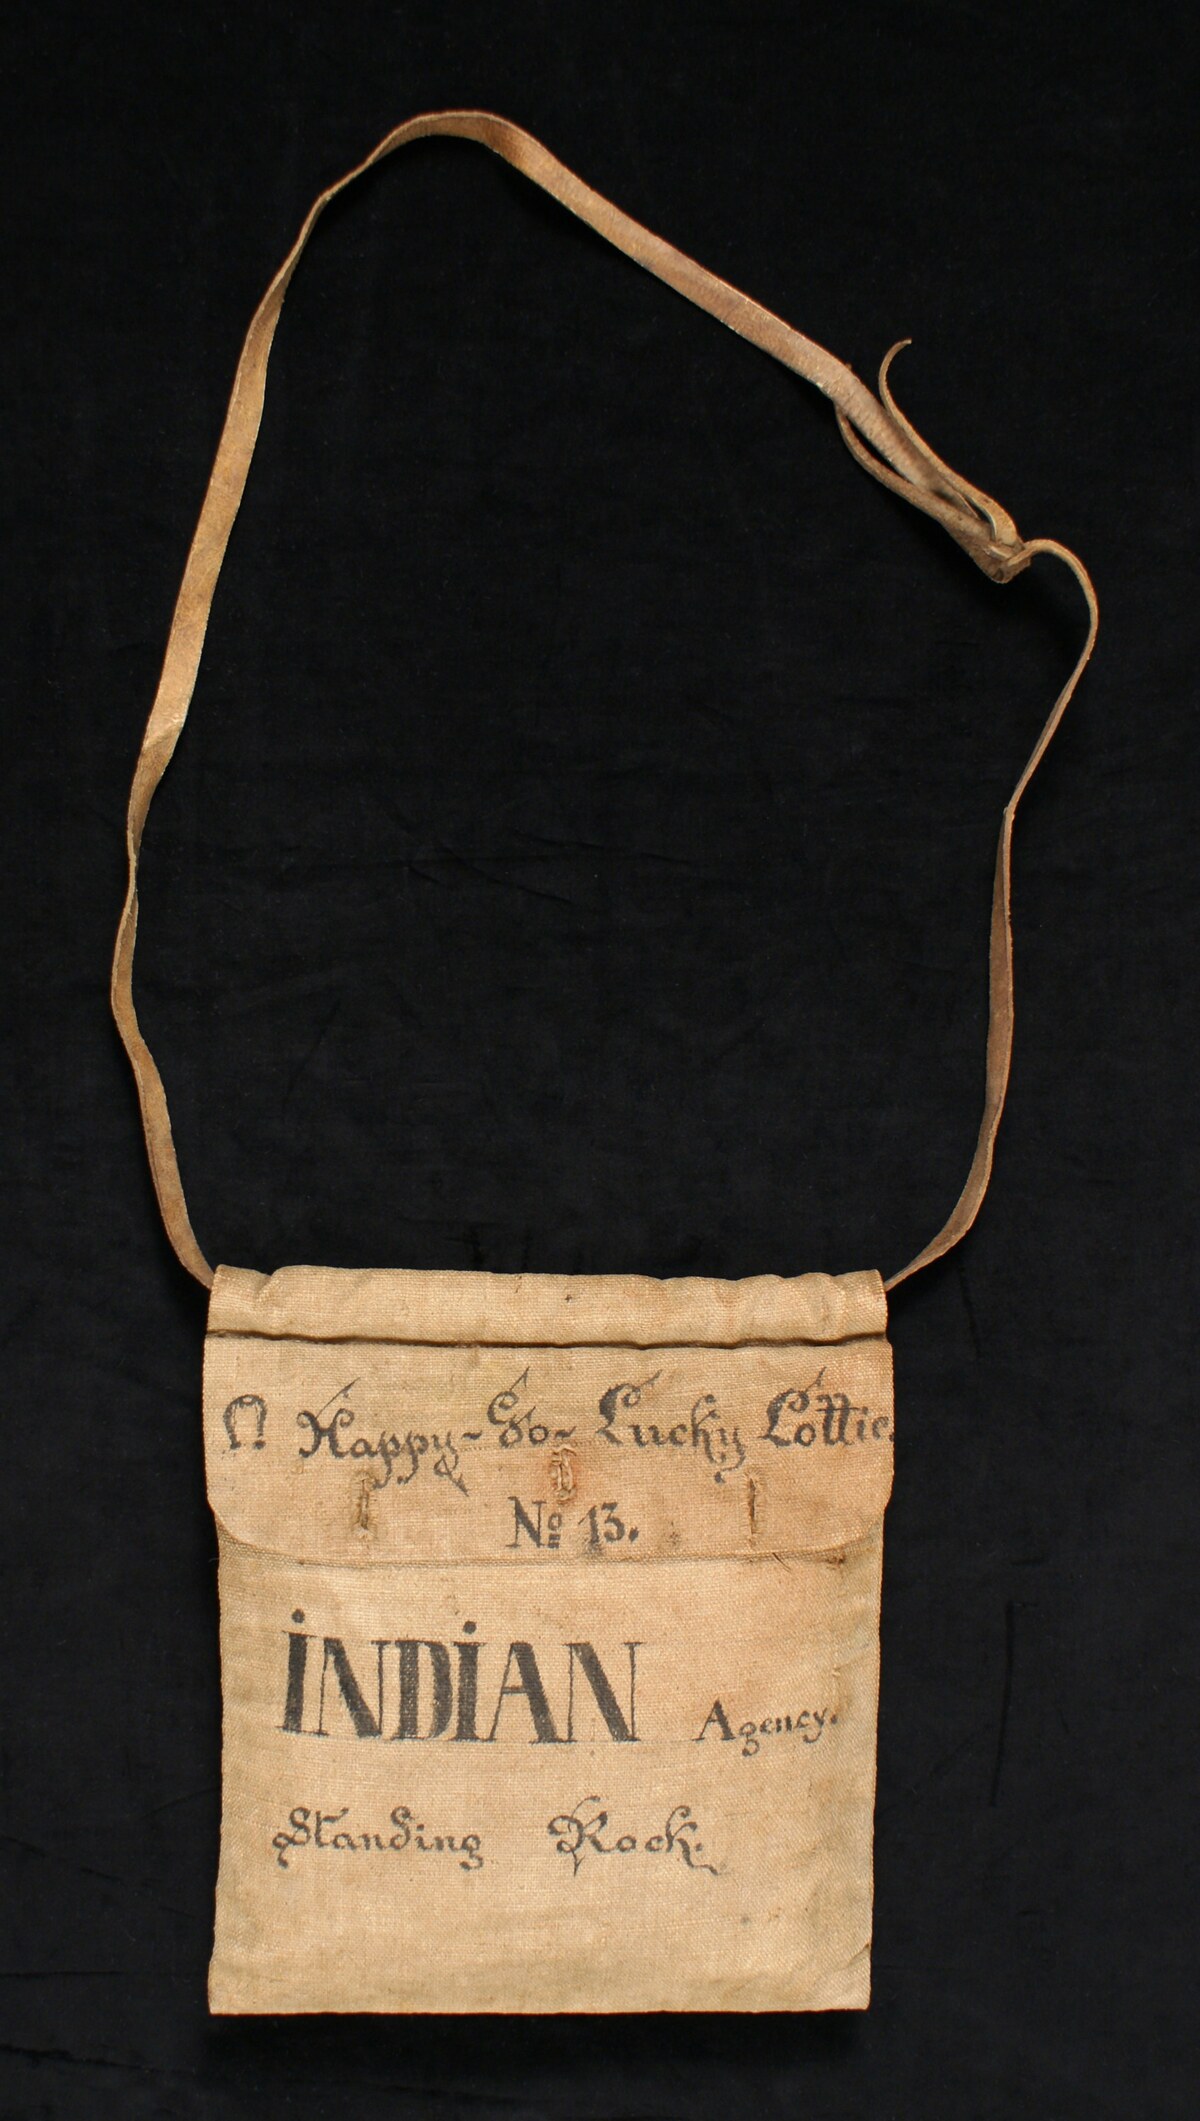 Happy-Go-Lucky Lottie.
No 13.
INDIAN Agency.
Standing Rock.